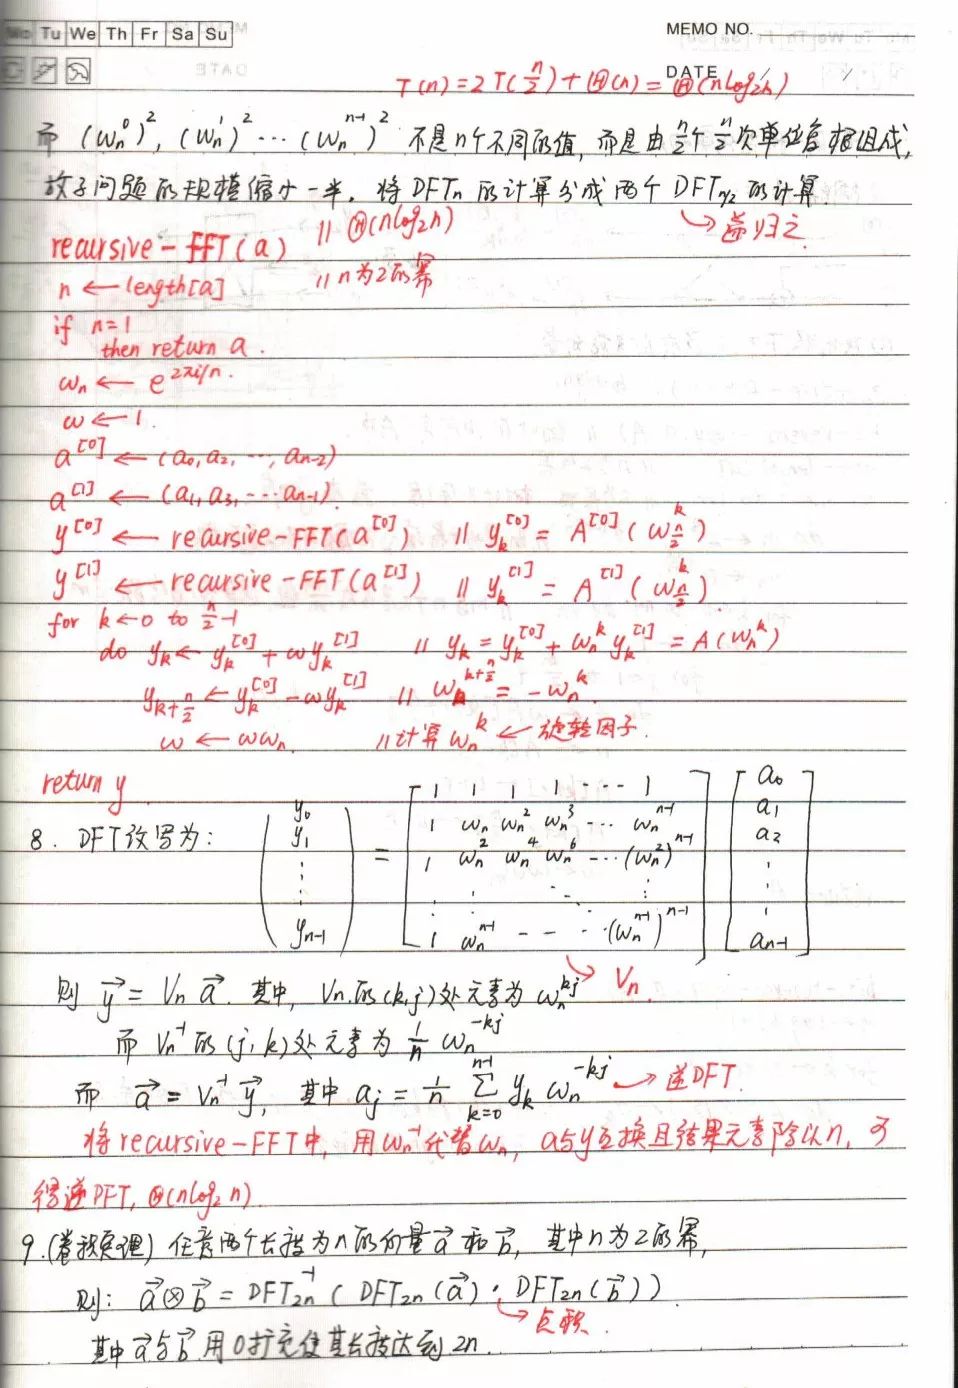 Mo Tu We Th Fr Sa Su
MEMO NO.
DATE / /
T(n)=2T(n/2)+Θ(n)=Θ(nlog₂n)
而 (ωₙ⁰)², (ωₙ¹)² ⋯ (ωₙⁿ⁻¹)² 不是n个不同的值, 而是由n/2个n/2次单位复根组成,
故子问题的规模缩小一半. 将DFTₙ的计算分成两个DFTₙ/₂的计算
→递归之.
recursive-FFT(a) // Θ(nlog₂n)
n ← length[a] // n为2的幂
if n=1
then return a.
ωₙ ← e^{2πi/n}.
ω ← 1.
a^[0] ← (a₀, a₂, ⋯, aₙ₋₂)
a^[1] ← (a₁, a₃, ⋯ aₙ₋₁).
y^[0] ← recursive-FFT(a^[0]) // y_k^[0] = A^[0](ω_{n/2}^k)
y^[1] ← recursive-FFT(a^[1]) // y_k^[1] = A^[1](ω_{n/2}^k).
for k←0 to n/2-1
do y_k ← y_k^[0] + ωy_k^[1] // y_k = y_k^[0] + ωₙ^k y_k^[1] = A(ωₙ^k)
y_{k+n/2} ← y_k^[0] - ωy_k^[1] // ωₙ^{k+n/2} = -ωₙ^k
ω ← ωωₙ // 计算ωₙ^k ← 旋转因子.
return y
8. DFT改写为:
( y₀ y₁ ⋮ yₙ₋₁ ) =
[ 1 1 1 1 ⋯ 1
1 ωₙ ωₙ² ωₙ³ ⋯ ωₙⁿ⁻¹
1 ωₙ² ωₙ⁴ ωₙ⁶ ⋯ (ωₙ²)ⁿ⁻¹
⋮ ⋮ ⋱ ⋱ ⋮
1 ωₙⁿ⁻¹ - - - (ωₙⁿ⁻¹)ⁿ⁻¹ ]
[ a₀ a₁ a₂ ⋮ aₙ₋₁ ]
→ Vₙ.
则 y⃗ = Vₙ a⃗. 其中, Vₙ的(k,j)处元素为ωₙ^{kj}
而 Vₙ⁻¹的(j,k)处元素为 1/n ωₙ^{-kj}
而 a⃗ = Vₙ⁻¹ y⃗, 其中 a_j = 1/n ∑_{k=0}^{n-1} y_k ωₙ^{-kj} → 逆DFT.
将recursive-FFT中, 用ωₙ⁻¹代替ωₙ, a与y互换且结果元素除以n, 可
得逆DFT, Θ(nlog₂n)
9. (卷积原理) 任意两个长度为n的向量a⃗和b⃗, 其中n为2的幂,
则: a⃗⊗b⃗ = DFT₂ₙ⁻¹( DFT₂ₙ(a⃗) · DFT₂ₙ(b⃗) )
→点积.
其中a⃗与b⃗用0扩充使其长度达到2n.